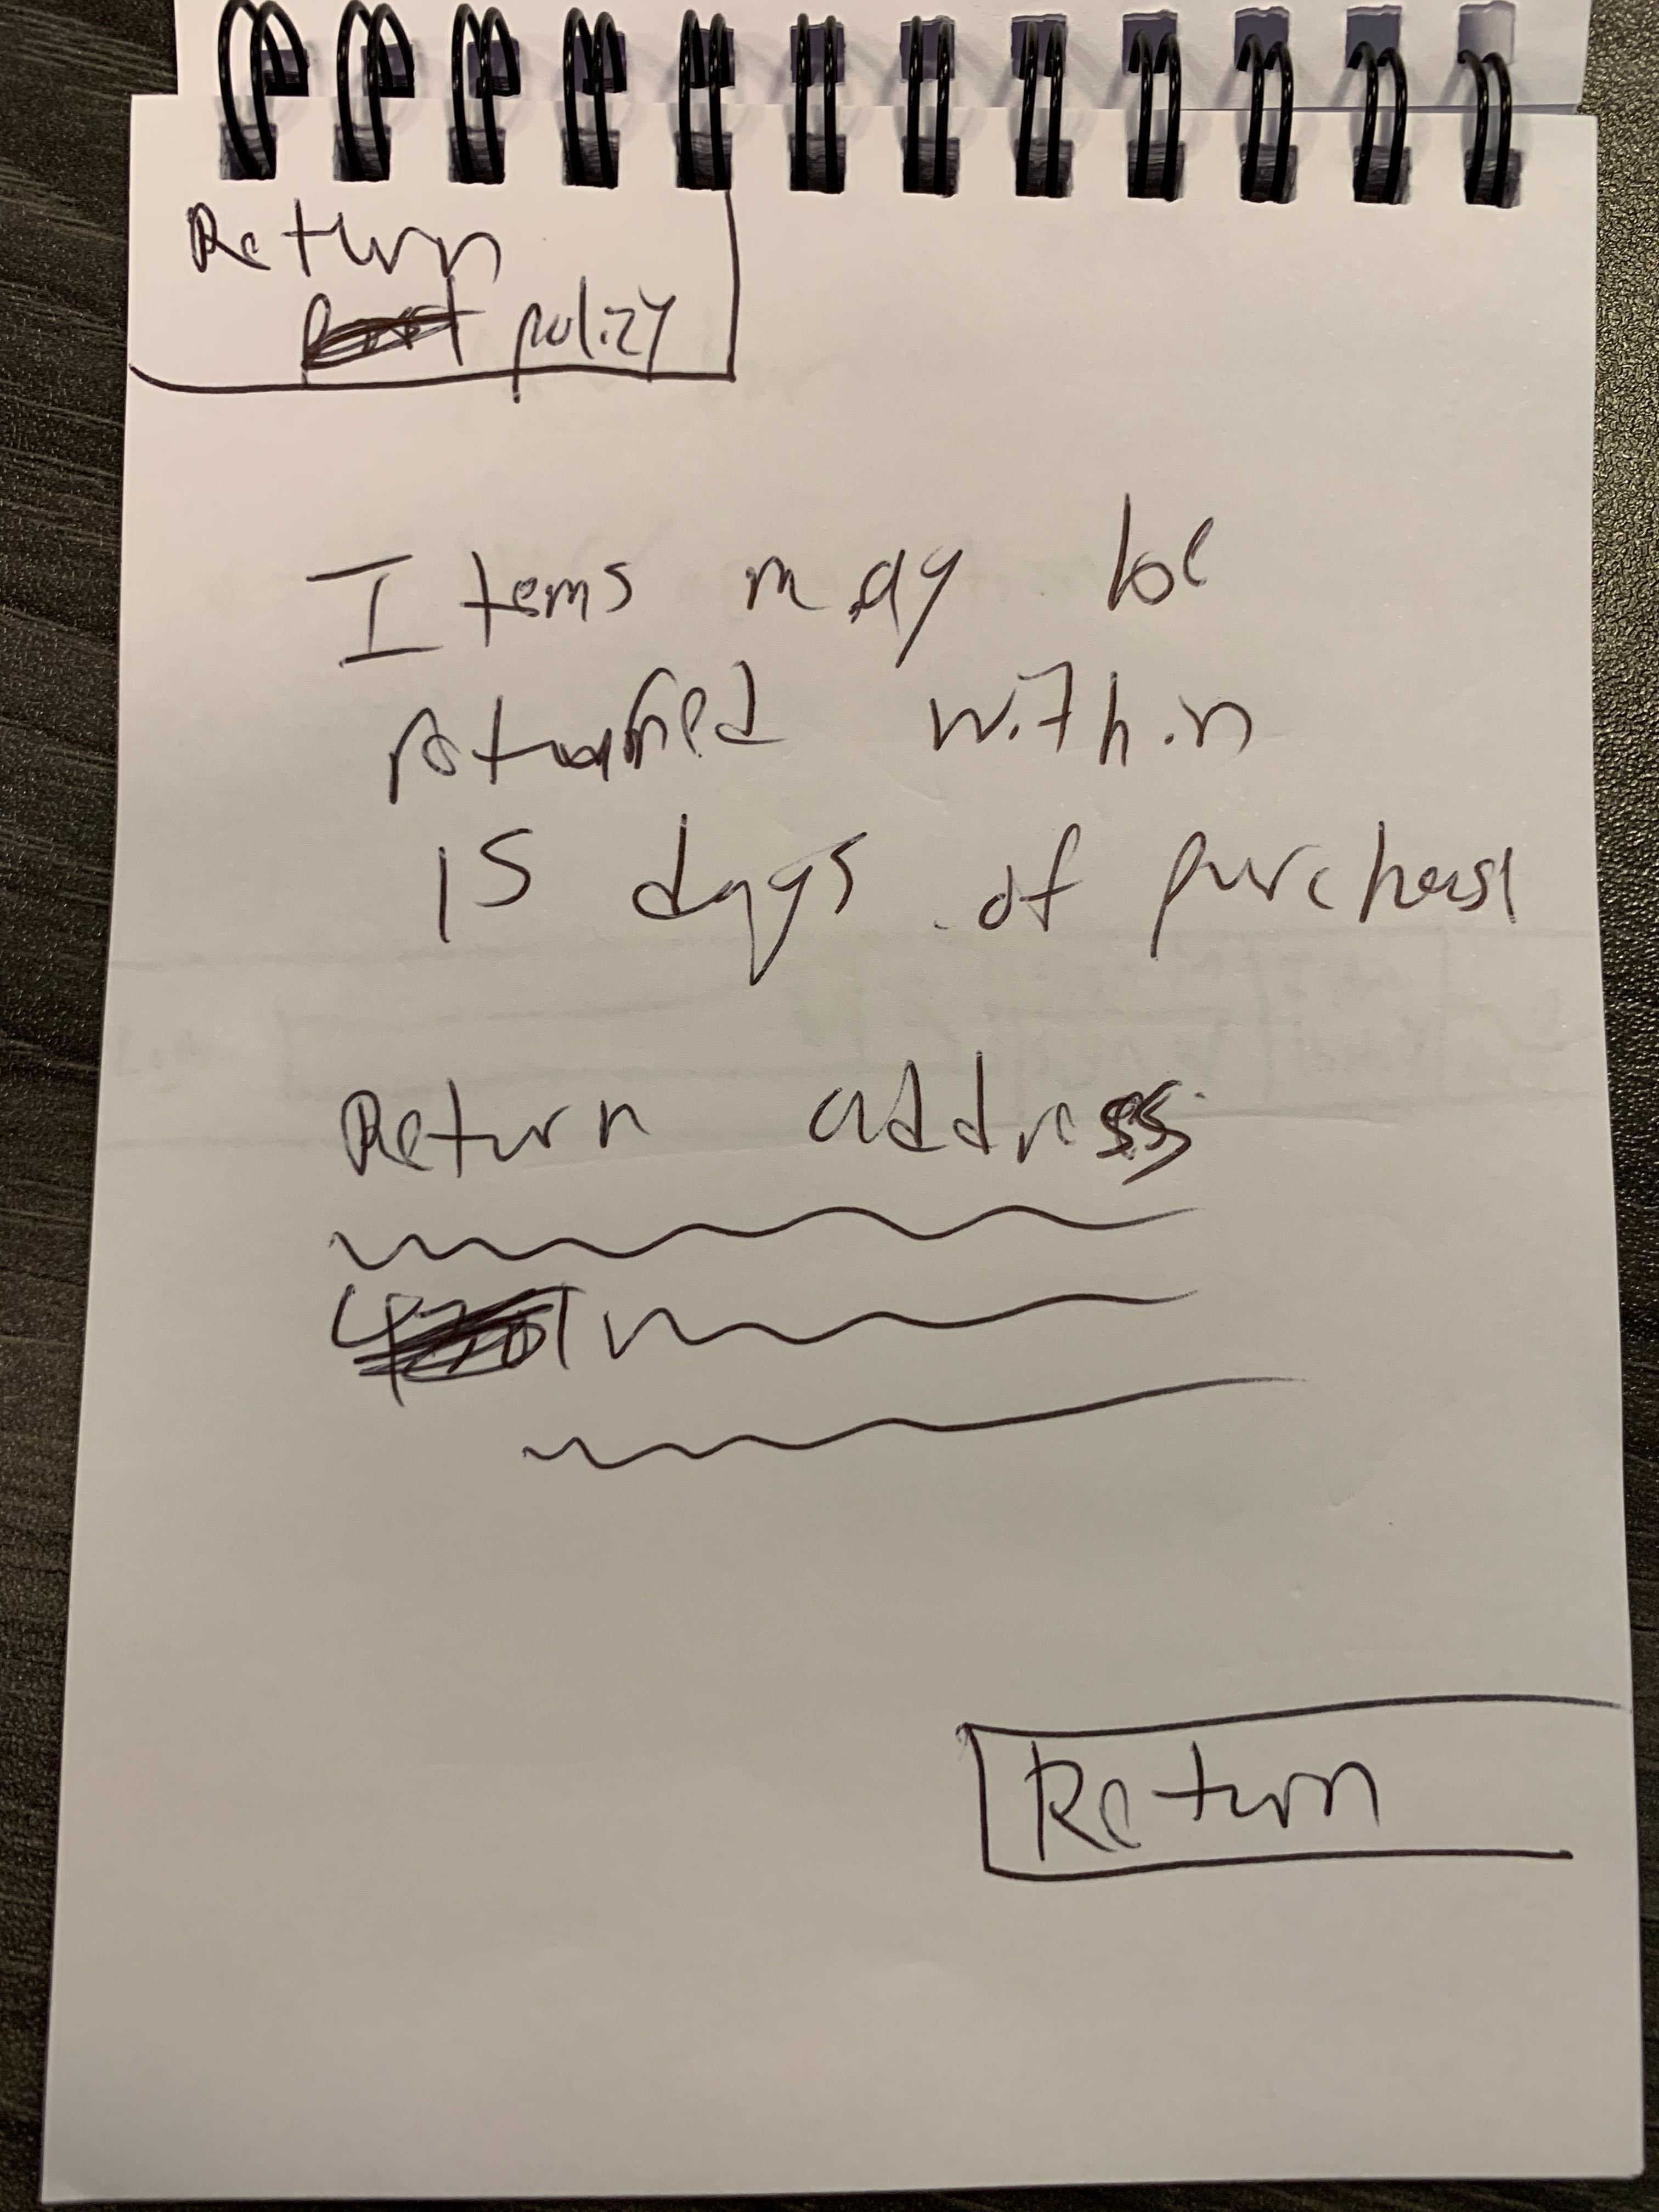 Return
policy
Items may be
returned within
15 days of purchase
Return address
Return